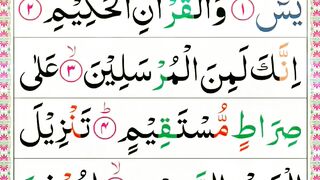 يٰسٓ ۝١ وَالْقُرْاٰنِ الْحَكِيْمِ ۝٢
اِنَّكَ لَمِنَ الْمُرْسَلِيْنَ ۝٣ۙ عَلٰى
صِرَاطٍ مُّسْتَقِيْمٍ ۝٤ؕ تَنْزِيْلَ